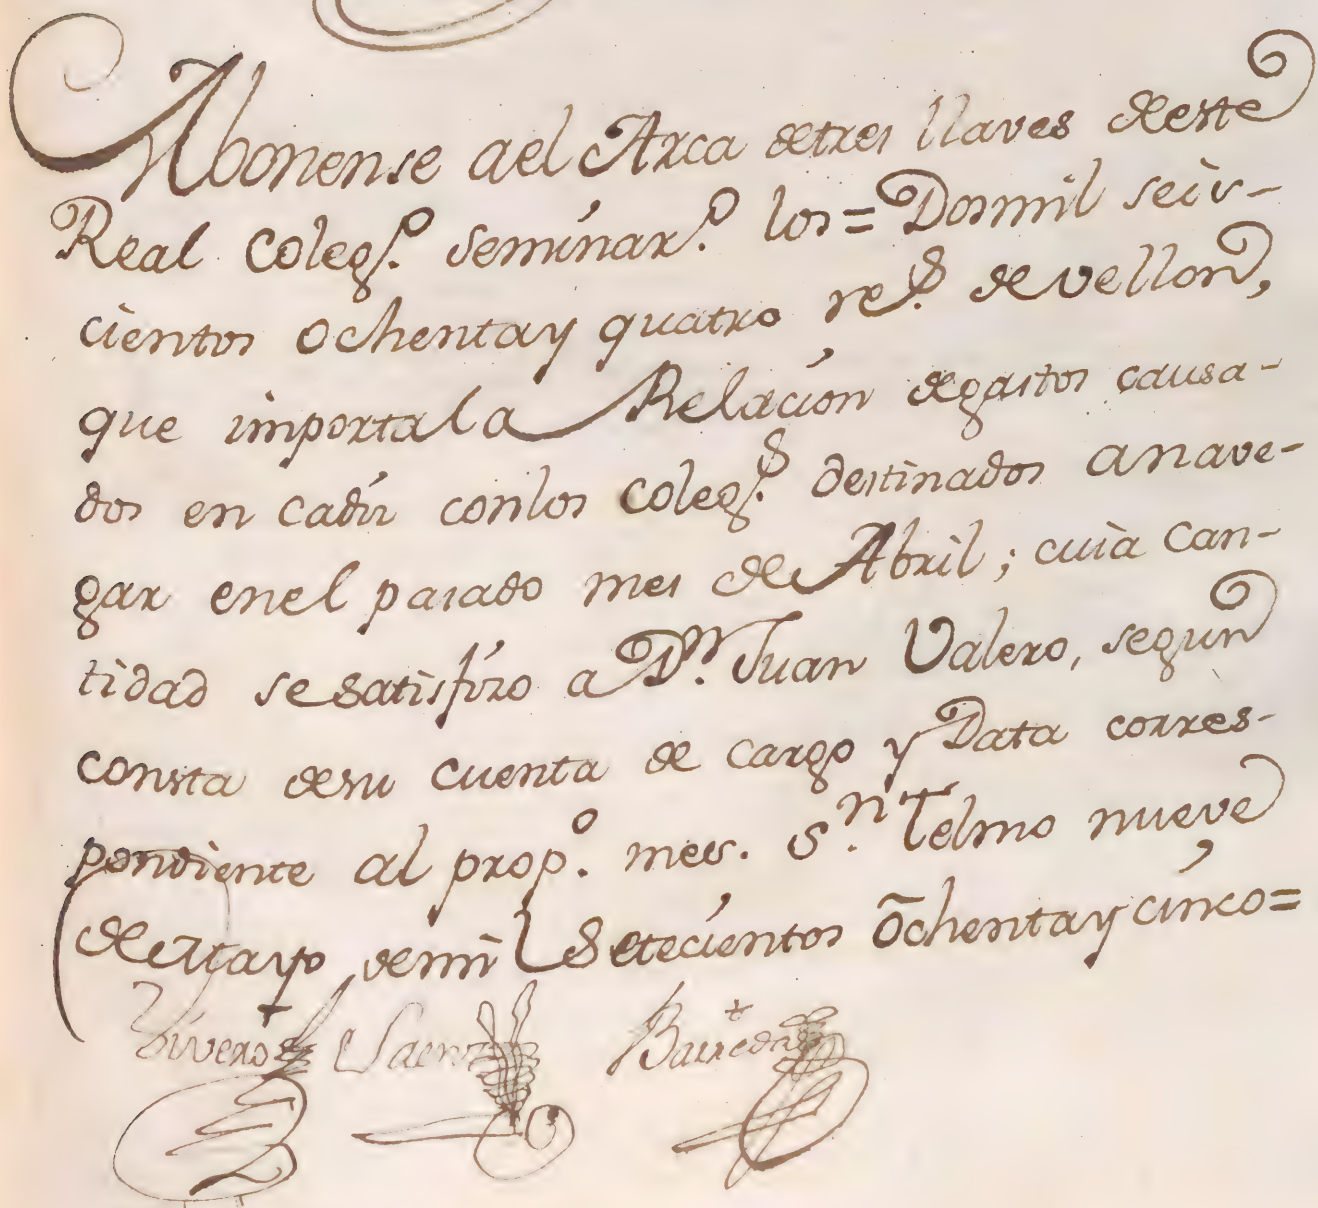 Abonense ael Arca detres llaves deeste
Real Coleg.º Seminar.º los = Dosmil seis-
cientos ochentay quatro re.ˢ de vellon,
que importa la Relacion degastos causa-
dos en Cadiz conlos Coleg.ˢ destinados anave-
gar enel pasado mes de Abril; cuia can-
tidad sesatisfizo a D.ⁿ Juan Valero, segun
consta desu cuenta de cargo y Data corres-
pondiente al prop.º mes. S.ⁿ Telmo nueve
de Mayo de mil Setecientos ochentay cinco =
Vivero Saenz Barreda